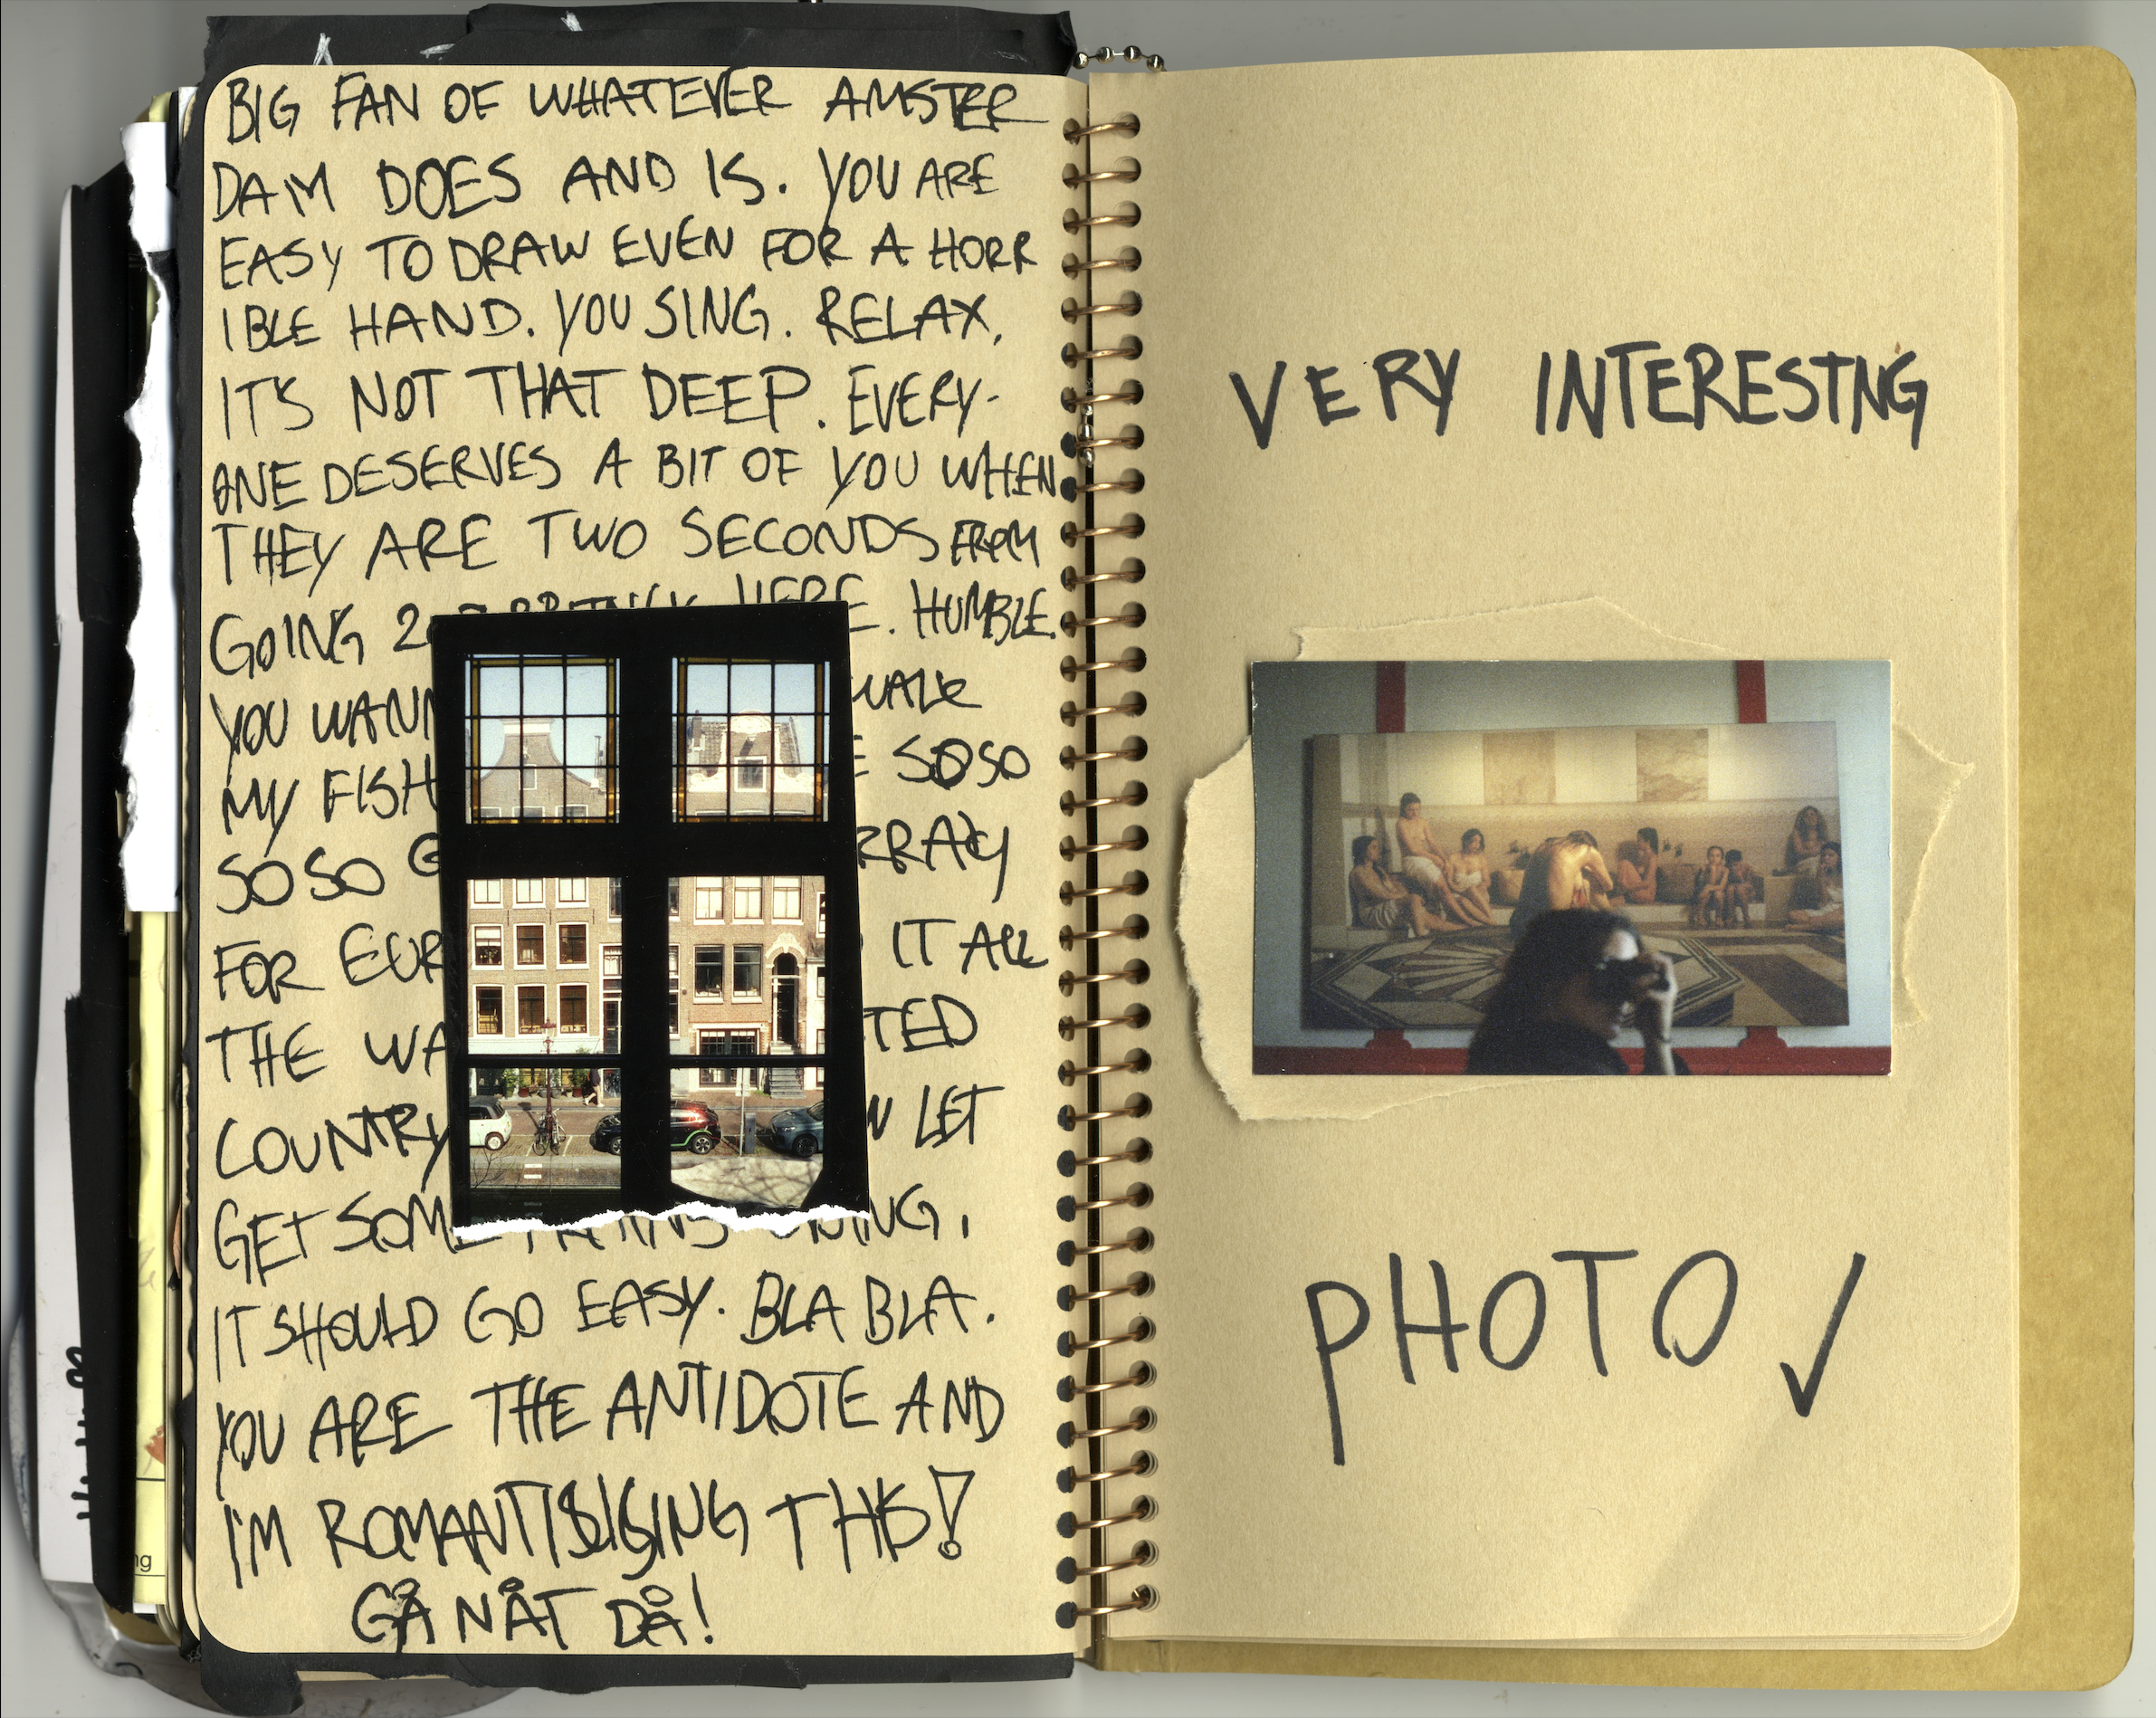 BIG FAN OF WHATEVER AMSTER
DAM DOES AND IS. YOU ARE
EASY TO DRAW EVEN FOR A HORR
IBLE HAND. YOU SING. RELAX,
IT'S NOT THAT DEEP. EVERY-
ONE DESERVES A BIT OF YOU WHEN
THEY ARE TWO SECONDS FROM
GOING 2 BRITNEY HERE. HUMBLE.
YOU WANN WALK
MY FISH SOSO
SOSO
FOR EUR IT ALL
THE WA TED
COUNTRY LET
GET SOM
IT SHOULD GO EASY. BLA BLA.
YOU ARE THE ANTIDOTE AND
I'M ROMANTISISING THIS!
GÅ NÅT DÅ!
VERY INTERESTNG
PHOTO ✓
ng